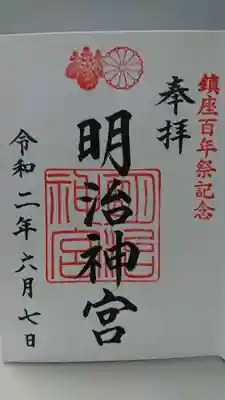 鎮座百年祭記念
奉拝
明治神宮
明治神宮
令和二年六月七日